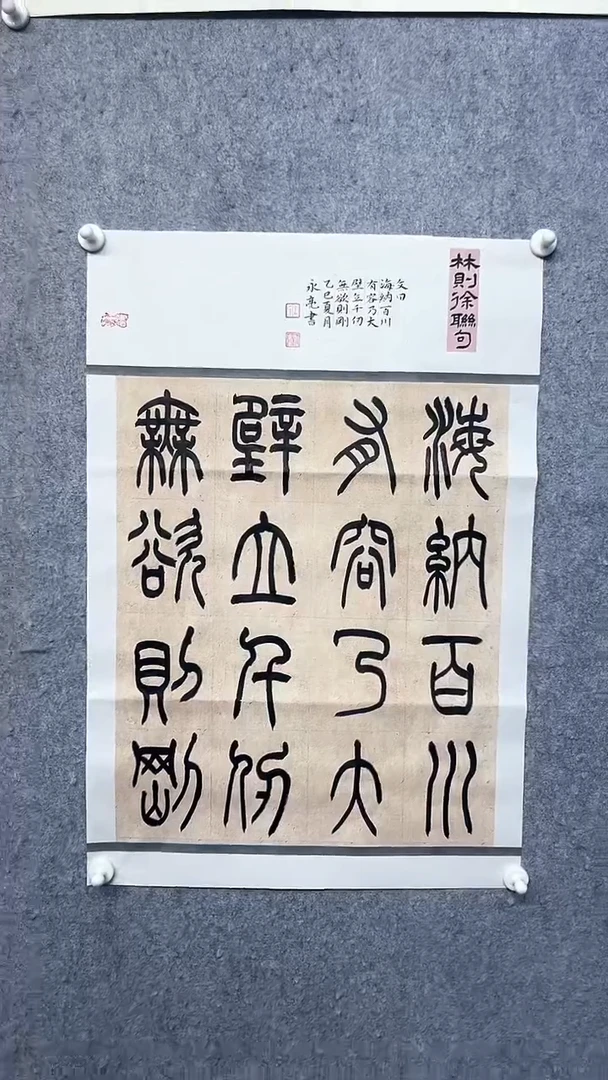 林則徐聯句
文曰
海納百川
有容乃大
壁立千仞
無欲則剛
乙巳夏月
永亮書
海納百川
有容乃大
壁立千仞
無欲則剛